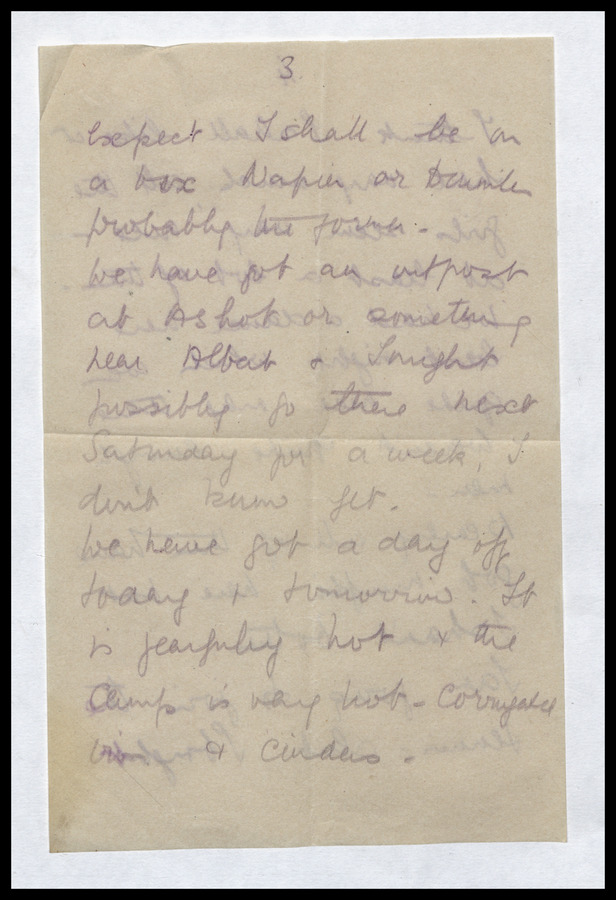 3
expect I shall be on
a box Napier or Daimler
probably the former.
We have got an outpost
at Ashot or something
near Albert & I might
possibly go there next
Saturday for a week, I
don't know yet.
We have got a day off
today & tomorrow. It
is fearfully hot & the
Camp is very hot - Corrugated
iron & Cinders.